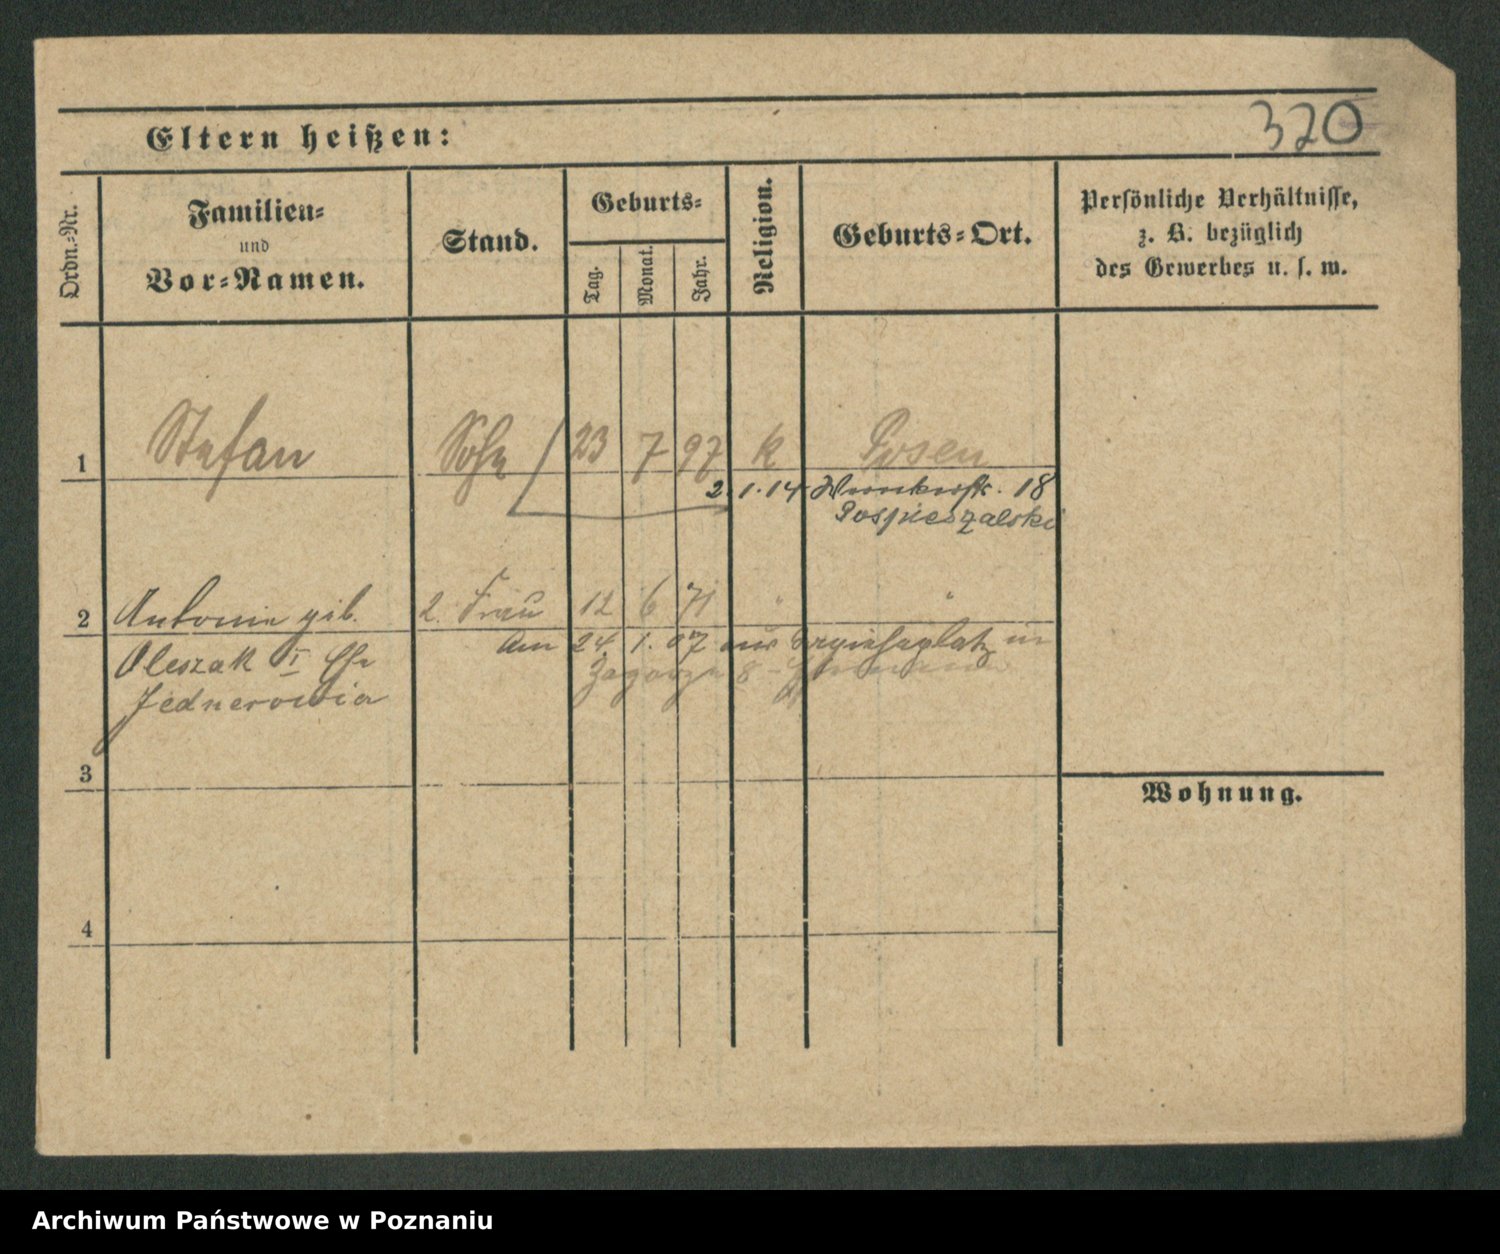 320
Eltern heißen:
Ordn.-Nr.
Familien-
und
Vor-Namen.
Stand.
Geburts-
Tag.
Monat.
Jahr.
Religion.
Geburts-Ort.
Persönliche Verhältnisse,
z. B. bezüglich
des Gewerbes u. s. w.
1 Stefan Sohn 23 7 97 k Posen
2. 1. 14 18
Pospieszalski
2 Antonie geb. 2. Frau 12 6 71 " "
Am 24. 1. 07 aus in
Oleszak I Ehe
8
3
Wohnung.
4
Archiwum Państwowe w Poznaniu